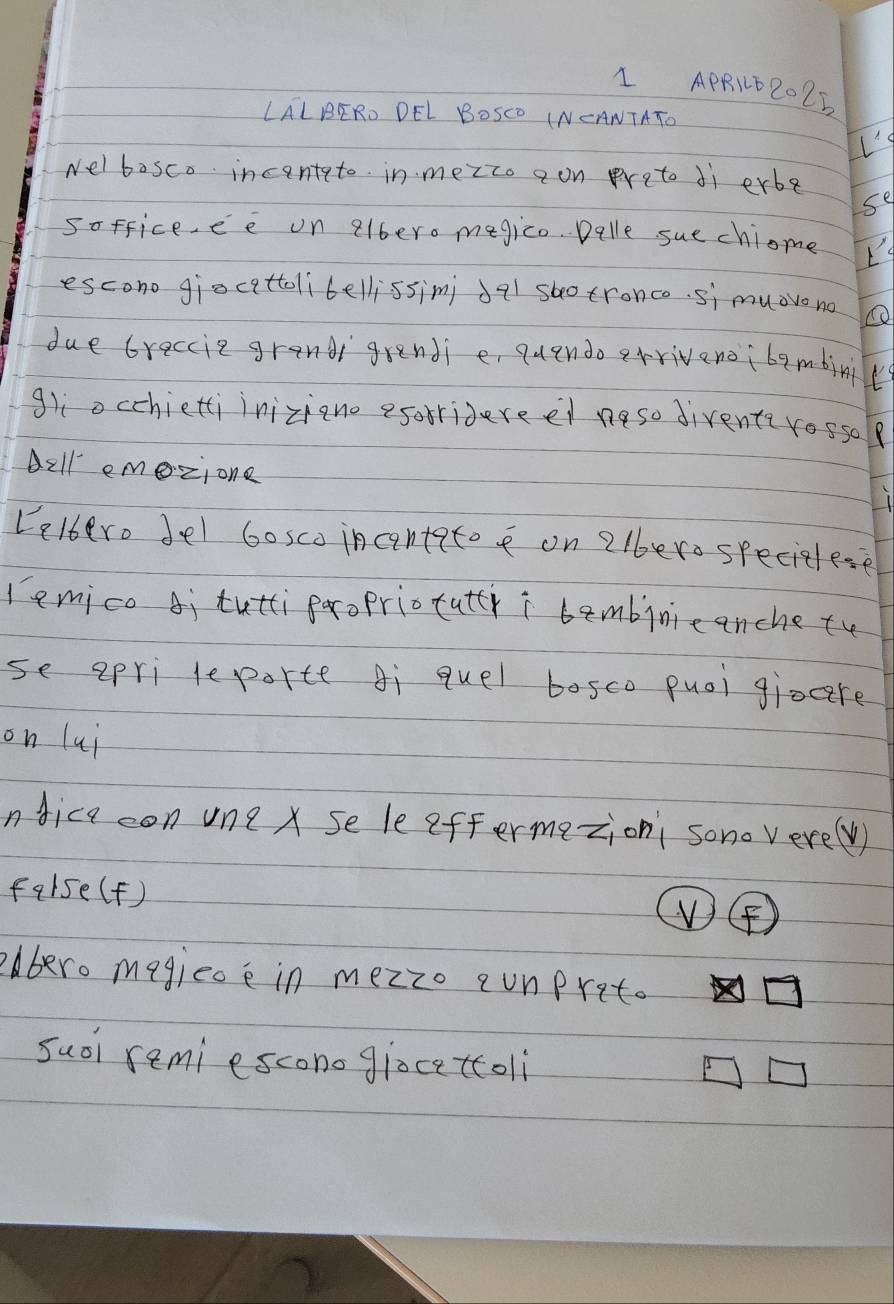 1 APRILE 2025
L'ALBERO DEL BOSCO INCANTATO
Nel bosco incantato in mezzo a un prato di erba
soffice. c'è è un albero magico. Dalle sue chiome
escono giocattoli bellissimi dal suo tronco si muovono
due braccia grandi grandi e, quando arrivano i bambini
gli occhietti iniziano a sorridere e il naso diventa rosso
Dall'emozione
L'albero del bosco incantato é un albero speciale: è
l'amico di tutti proprio tutti i bambini e anche tu
se apri le porte di quel bosco puoi giocare
on lui
ndica con una X se le affermazioni sono vere (V)
false (f)
V F
albero magico è in mezzo a un prato
suoi rami escono giocattoli